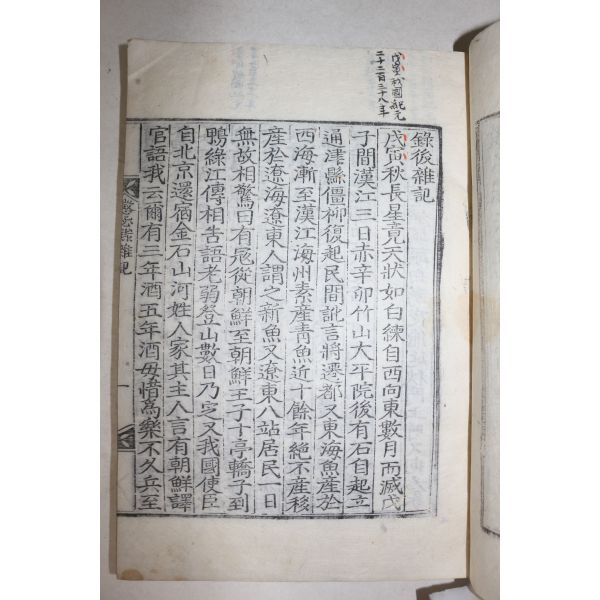 戊寅我國紀元
二千二百三十八年
錄後雜記
戊寅秋長星竟天狀如白練自西向東數月而滅戊
子間漢江三日赤辛卯竹山大平院後有石自起立
通津縣僵柳復起民間訛言將遷都又東海魚産於
西海漸至漢江海州素産青魚近十餘年絶不産移
産於遼海遼東人謂之新魚又遼東八站居民一日
無故相驚曰有寇從朝鮮至朝鮮王子十亭轎子到
鴨綠江傳相告語老弱登山數日乃定又我國使臣
自北京還宿金石山河姓人家其主人言有朝鮮譯
官語我云爾有三年酒五年酒毋惜爲樂不久兵至
懲毖錄雜記
一